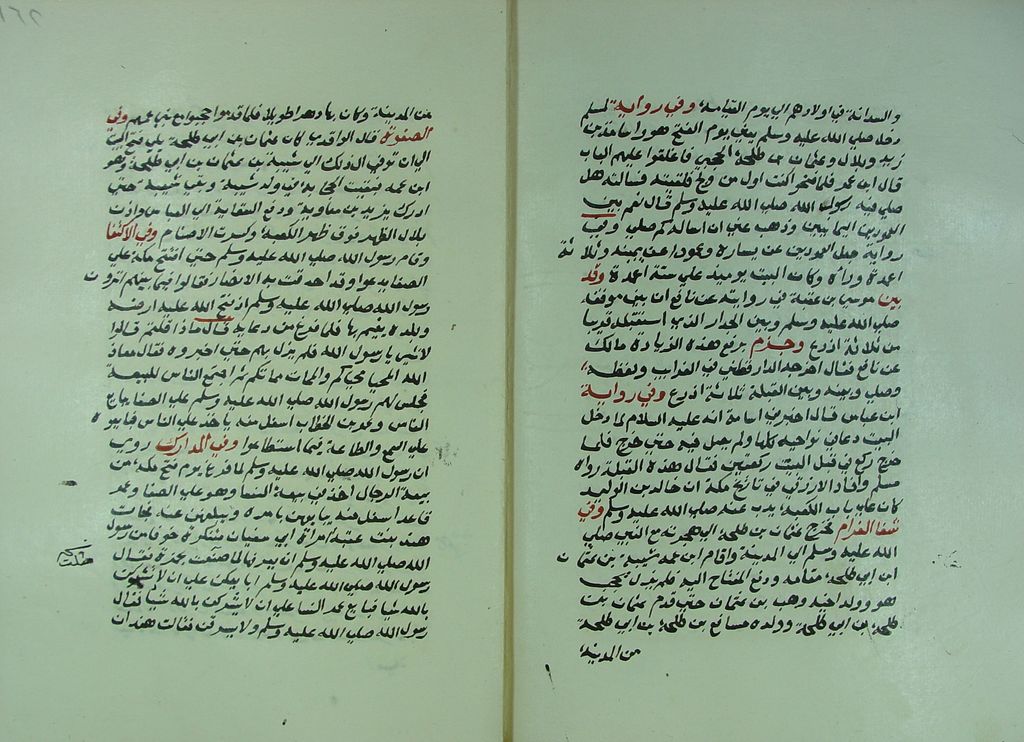 والسدانة في اولادهم الي يوم القيامة، وفي رواية لمسلم
دخل صلي الله عليه وسلم يعني يوم الفتح هو واسامة بن
زيد وبلال وعثمان بن طلحة الحجبي فاغلقوا عليهم الباب
قال ابن عمر فلما فتحوا كنت اول من ولج فلقيته فسالته هل
صلي فيه رسول الله صلي الله عليه وسلم قال نعم بين
العمودين اليمانيين وذهب عني ان اساله كم صلي وفي
رواية جعل العمودين عن يساره وعمودا عن يمينه وثلاثة
اعمدة وراه وكان البيت يوميذ علي ستة اعمدة وقد
بين موسي بن عقبة في روايته عن نافع ان بين موقفه
صلي الله عليه وسلم وبين الجدار الذي استقبله قريبا
من ثلاثة اذرع وجزم برفع هذه الزيادة مالك
عن نافع فقال اخرجه الدارقطني في الغرايب ولفظه
وصلي وبينه وبين القبلة ثلاثة اذرع وفي رواية
ابن عباس قال اخبرني اسامة انه عليه السلام لما دخل
البيت دعا في نواحيه كلها ولم يصل فيه حتي خرج فلما
خرج ركع في قبل البيت ركعتين فقال هذه القبلة رواه
مسلم وافاد الازرقي في تاريخ مكة ان خالد بن الوليد
كان علي باب الكعبة، يذب عنه صلي الله عليه وسلم وفي
شفا الغرام فخرج عثمان بن طلحة الي هجرته مع النبي صلي
الله عليه وسلم الي المدينة واقام ابن عمه شيبة بن عثمان
ابن ابي طلحة مقامه ودفع المفتاح اليه فلم يزل يحجب
هو وولد اخيه وهب بن عثمان حتي قدم عثمان بن
طلحة بن ابي طلحة وولده مسافع بن طلحة بن ابي طلحة
من المدينة،
١٦٢
من المدينة وكان بها دهرا طويلا فلما قدموا حجبوا مع بني عمهم وفي
الصفوة قال الواقدي كان عثمان بن ابي طلحة يلي فتح البيت
الي ان توفي الي شيبة بن عثمان بن ابي طلحة وهو
ابن عمه فبقيت الحجابة في ولد شيبة وبقي شيبة حتي
ادرك يزيد بن معاوية ودفع السقاية الي العباس واذن
بلال الظهر فوق ظهر الكعبة، وكسرت الاصنام وفي الاكتفا
وقام رسول الله صلي الله عليه وسلم حتي افتتح مكة علي
الصفا يدعو وقد احدقت به الانصار فقالوا فيما بينهم اترون
رسول الله صلي الله عليه وسلم اذ فتح الله عليه ارضه
وبلده يقيم بها فلما فرغ من دعايه قال ماذا قلتم قالوا
لا شي يا رسول الله فلم يزل بهم حتي اخبروه فقال معاذ
الله المحيا محياكم والممات مماتكم ثم اجتمع الناس للبيعة
فجلس لهم رسول الله صلي الله عليه وسلم علي الصفا يبايع
الناس وعمر بن الخطاب اسفل منه ياخذ علي الناس فبايعوه
علي السمع والطاعة فيما استطاعوا وفي المدارك روي
ان رسول الله صلي الله عليه وسلم لما فرغ يوم فتح مكة، من
بيعة الرجال اخذ في بيعة النسا وهو علي الصفا وعمر
قاعد اسفل منه يبايعهن بامره ويبلغهن عنه فجات
هند بنت عتبة امراة ابي سفيان متنكرة خوفا من رسول
الله صلي الله عليه وسلم ان يعرفها لما صنعت بحمزة فقال
رسول الله صلي الله عليه وسلم ابايعكن علي ان لا تشركن
بالله شيا فبايع عمر النسا علي ان لا يشركن بالله شيا فقال
رسول الله صلي الله عليه وسلم ولا يسرقن فقالت هند ان